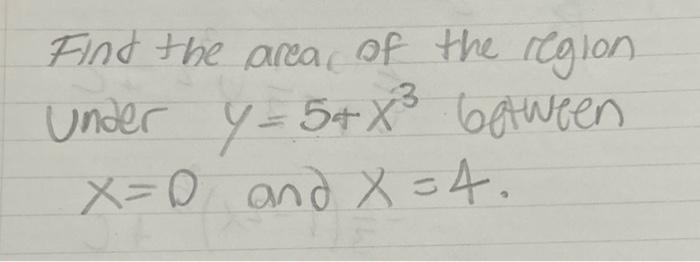 Find the area of the region
under y = 5 + x³ between
x = 0 and x = 4.